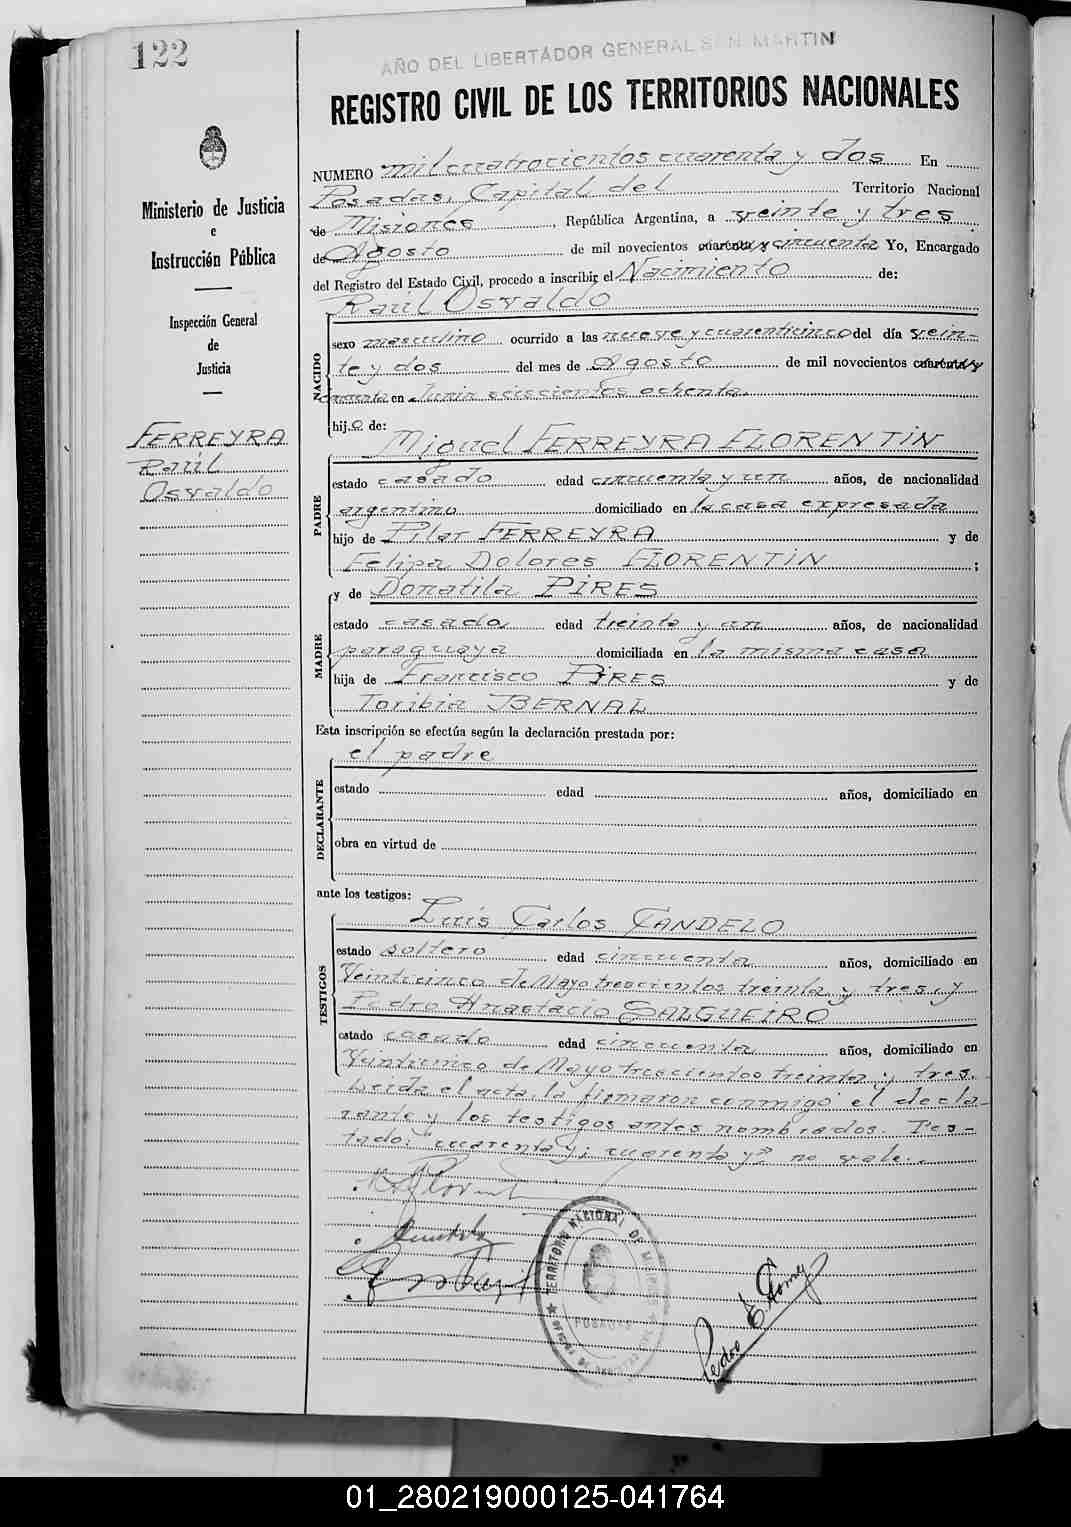 122
AÑO DEL LIBERTADOR GENERAL SAN MARTIN
REGISTRO CIVIL DE LOS TERRITORIOS NACIONALES
Ministerio de Justicia
e
Instrucción Pública
Inspección General
de
Justicia
FERREYRA
Raúl
Osvaldo
NUMERO mil cuatrocientos cuarenta y dos En
Posadas, Capital del Territorio Nacional
de Misiones, República Argentina, a veinte y tres
de Agosto de mil novecientos cuarenta y cincuenta Yo, Encargado
del Registro del Estado Civil, procedo a inscribir el Nacimiento de:
Raúl Osvaldo
NACIDO
sexo masculino ocurrido a las nueve y cuarenticinco del día vein-
te y dos del mes de Agosto de mil novecientos cuarenta y
cincuenta en Junin seiscientos ochenta.
hijo de:
Miguel FERREYRA FLORENTIN
PADRE
estado casado edad cincuenta y un años, de nacionalidad
argentino domiciliado en la casa expresada
hijo de Pilar FERREYRA y de
Felipa Dolores FLORENTIN ;
y de Donatila PIRES
MADRE
estado casada edad treinta y un años, de nacionalidad
paraguaya domiciliada en la misma casa
hija de Francisco PIRES y de
Toribia BERNAL
Esta inscripción se efectúa según la declaración prestada por:
el padre
DECLARANTE
estado edad años, domiciliado en
obra en virtud de
ante los testigos:
Luis Carlos CANDELO
TESTIGOS
estado soltero edad cincuenta años, domiciliado en
Veinticinco de Mayo trescientos treinta y tres, y
Pedro Anastacio SALGUEIRO
estado casado edad cincuenta años, domiciliado en
Veinticinco de Mayo trescientos treinta y tres.
Leída el acta, la firmaron conmigo el decla-
rante y los testigos antes nombrados. Tes-
tado: "cuarenta y; cuarenta y" no vale.
TERRITORIO NACIONAL DE MISIONES
POSADAS
Pedro E. Gomez
01_280219000125-041764